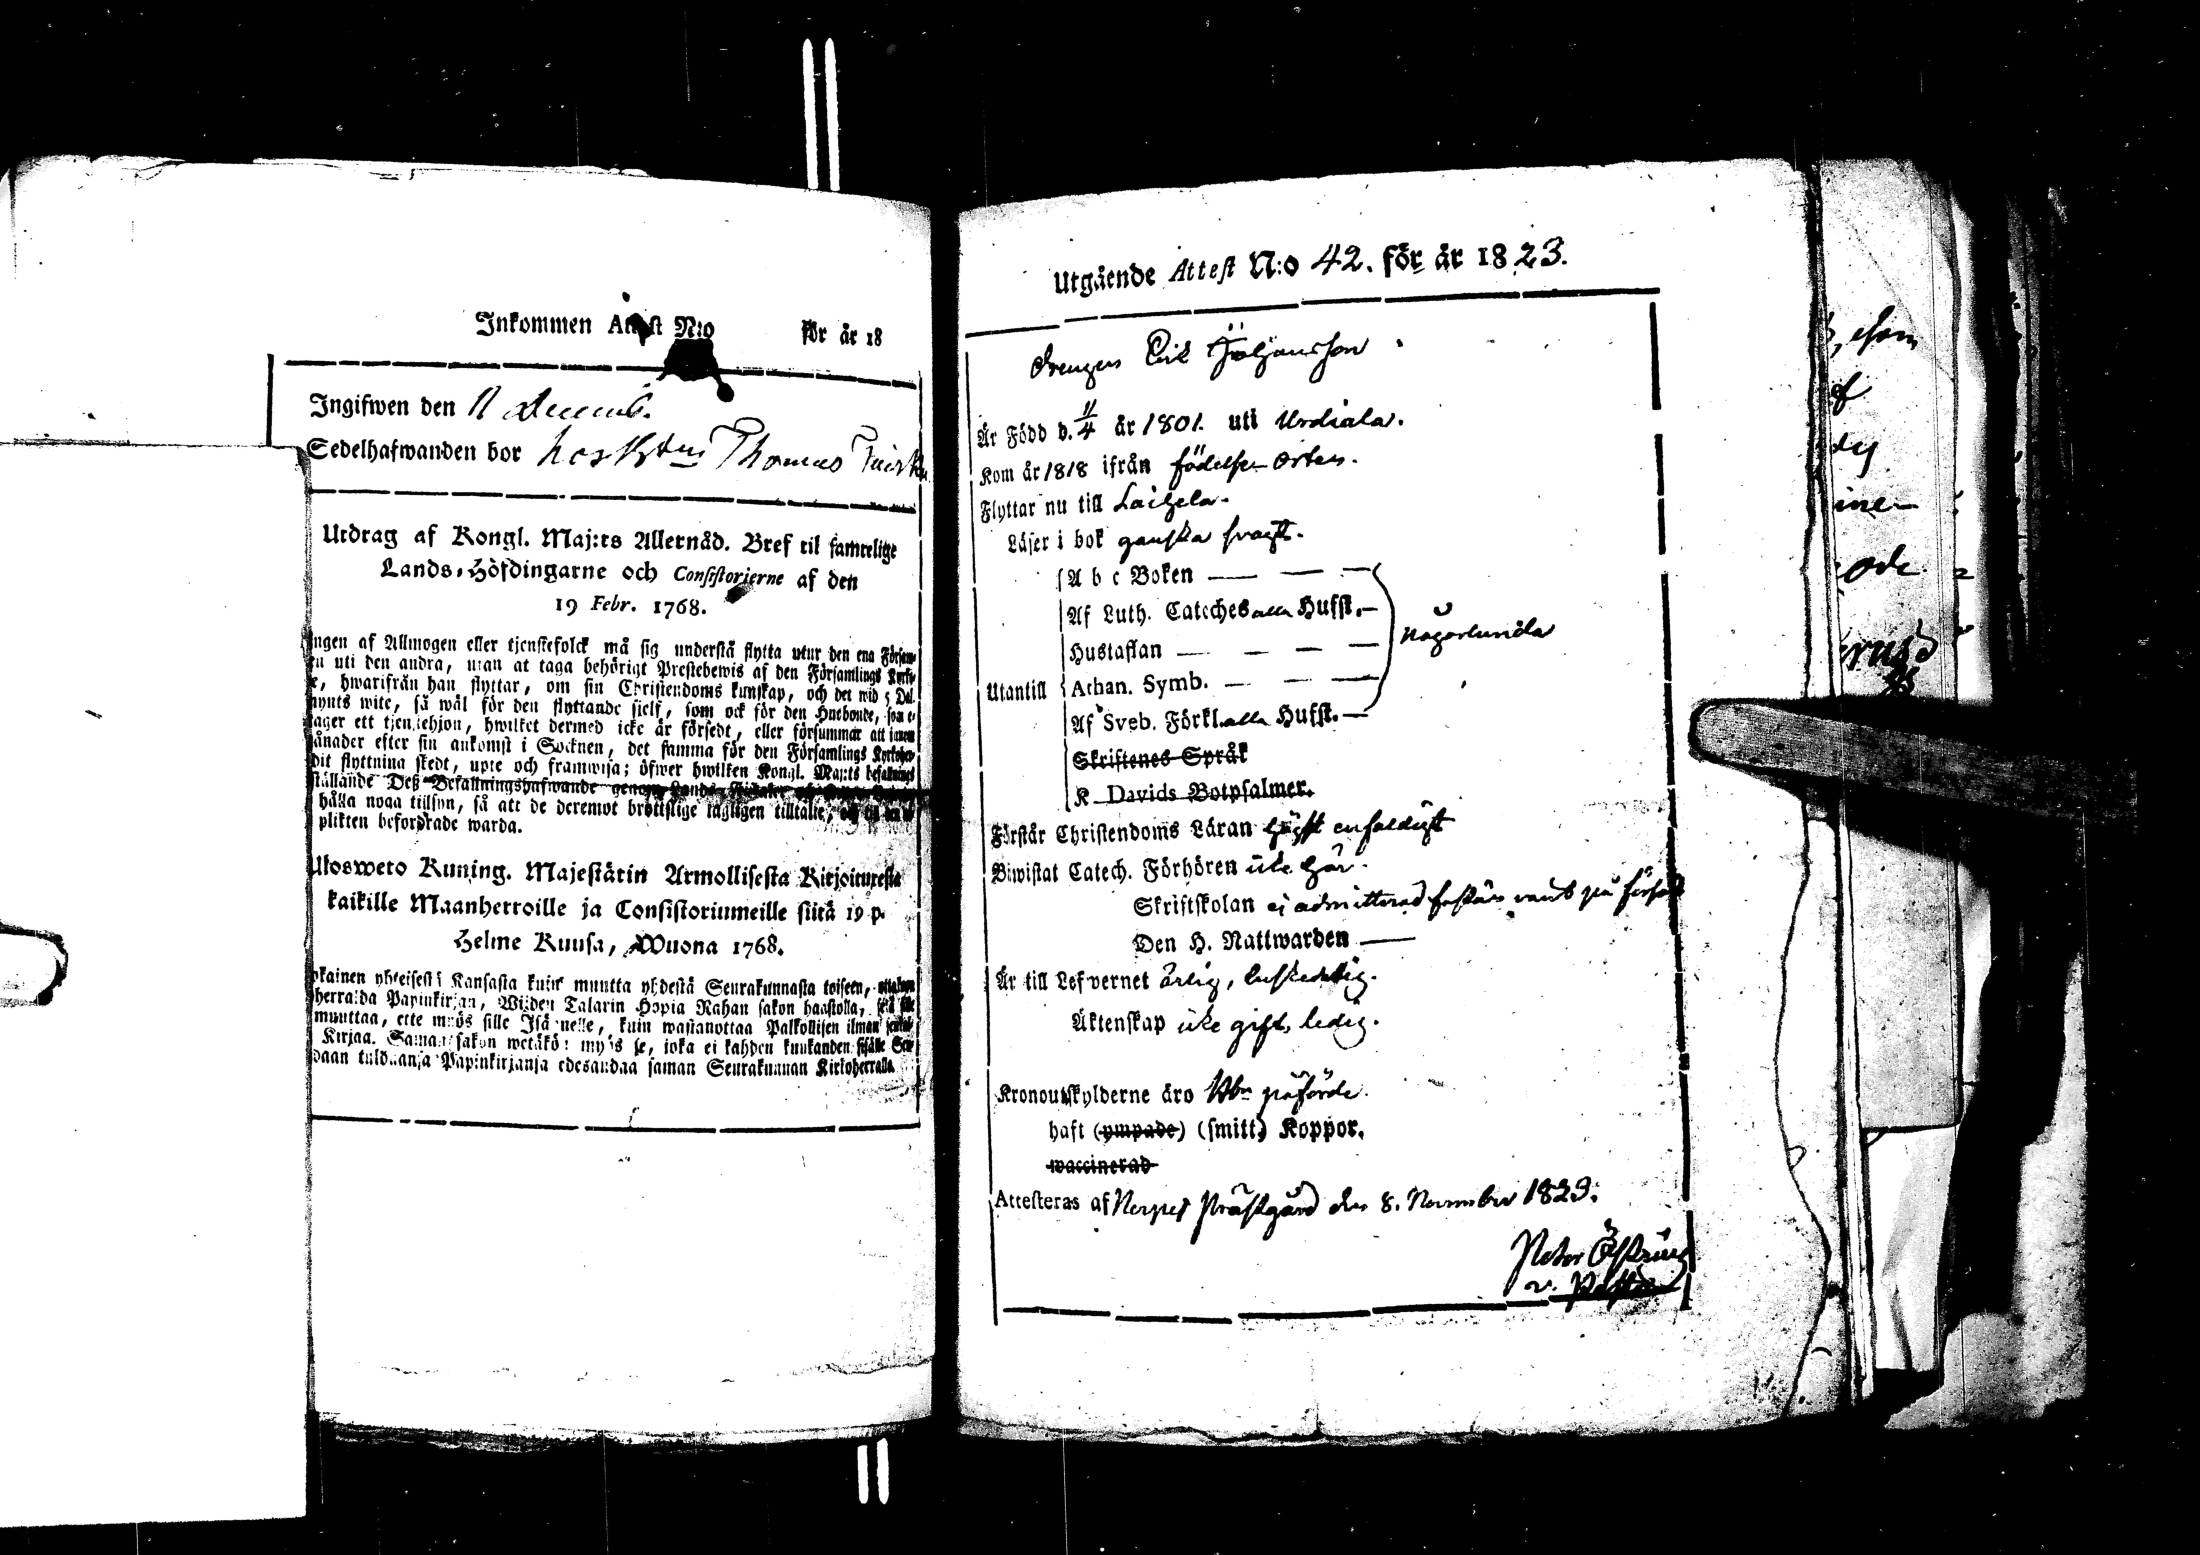 Inkommen Attest N:o för år 18
Ingifwen den 11 Decemb.
Sedelhafwanden bor Thomas
Utdrag af Kongl. Maj:ts Allernåd. Bref til samtelige
Lands-Höfdingarne och Consistorierne af den
19 Febr. 1768.
ngen af Allmogen eller tjenstefolck må sig understå flytta utur den ena Försam-
en uti den andra, utan at taga behörigt Prestebewis af den Församlings Kyrko-
e, hwarifrån han flyttar, om sin Christendoms kunskap, och det wid 5 Dal.
mynts wite, så wäl för den flyttande sielf, som ock för den Husbonde, som e-
tager ett tjenstehjon, hwilket dermed icke är försedt, eller försummar att innom
månader efter sin ankomst i Socknen, det samma för den Församlings Kyrkoher-
dit flyttning skedt, upte och framwisa; öfwer hwilken Kongl. Maj:ts befallnings
ställande Deß Befallningshafwande genom Lands-
hålla noga tillsyn, så att de deremot bröttslige lagligen tilltalte, och til
plikten befordrade warda.
Ulosweto Kuning. Majestätin Armollisesta Kirjoituxesta
kaikille Maanherroille ja Consistoriumeille siitä 19 p.
Helme Kuusa, Wuona 1768.
okainen yhteisestä Kansasta kuin muutta yhdestä Seurakunnasta toiseen, ottakon
herralda Papinkirjan, Wijden Talarin Hopia Rahan sakon haastolla, sekä sille
muuttaa, ette myös sille Isännelle, kuin wastanottaa Palkollisen ilman senkal-
Kirjaa. Saman sakon wetäkön myös se, joka ei kahden kuukanden sisälle Seu-
daan tulduansa Papinkirjansa edesandaa saman Seurakunnan Kirkoherralle.
Utgående Attest N:o 42. för år 1823.
Drengen Eric Johansson
Är Född d. 11/4 år 1801. uti Urdiala.
Kom år 1818 ifrån födelse-orten.
Flyttar nu till Laihela.
Läser i bok ganska svagt.
A b c Boken — — —
Af Luth. Catechesalla Hufst. —
Hustaflan — — — —
Utantill Athan. Symb. — — —
Någorlunda
Af Sveb. Förkl. alla Hufst. —
Skriftenes Språk
K Davids Botpsalmer.
Förstår Christendoms Läran högst enfaldigt
Biwistat Catech. Förhören icke här.
Skriftskolan ej admitterad fastän varit på försök
Den H. Nattwarden —
Är till Lefvernet ärlig, beskedelig.
Äktenskap icke gift, ledig.
Kronoutskylderne äro påförde.
haft (ympade) (smitt) Koppor.
waccinerad
Attesteras af Nerpes Prästgård den 8. November 1823.
Petter Östring
v. Pastor